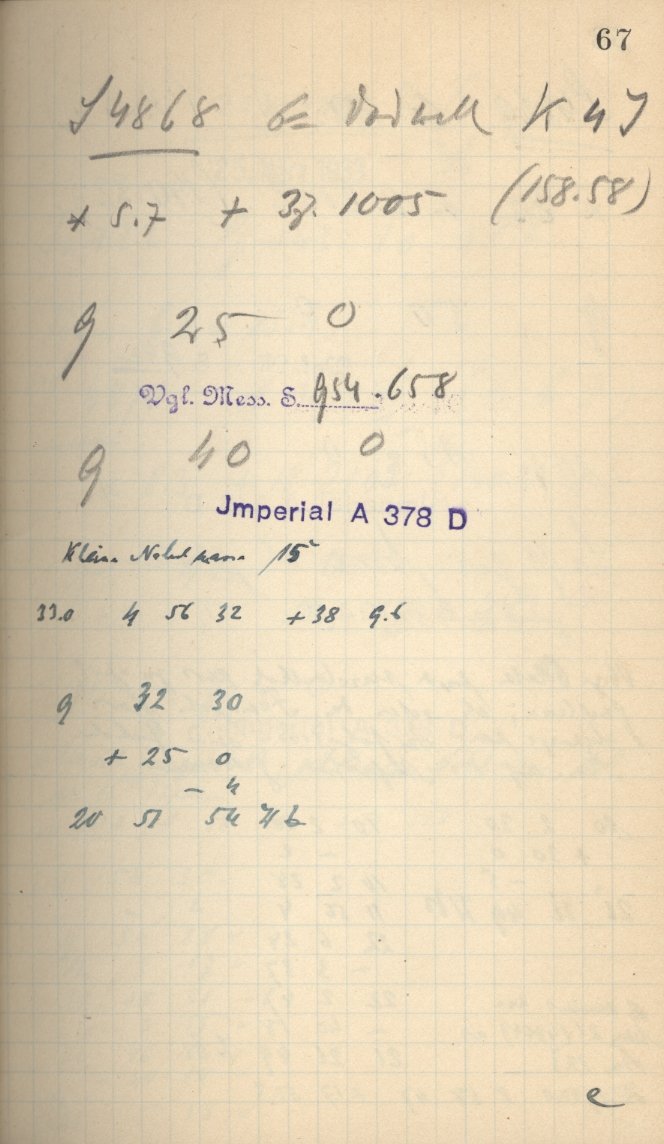 67
J4868 K 4 J
+ 5.7 + 37.1005 (158.58)
9 25 0
Vgl. Mess. S. 954.658
9 40 0
Jmperial A 378 D
Kleine 15
33.0 4 56 32 +38 9.6
9 32 30
+ 25 0
- 4
20 51 54
e